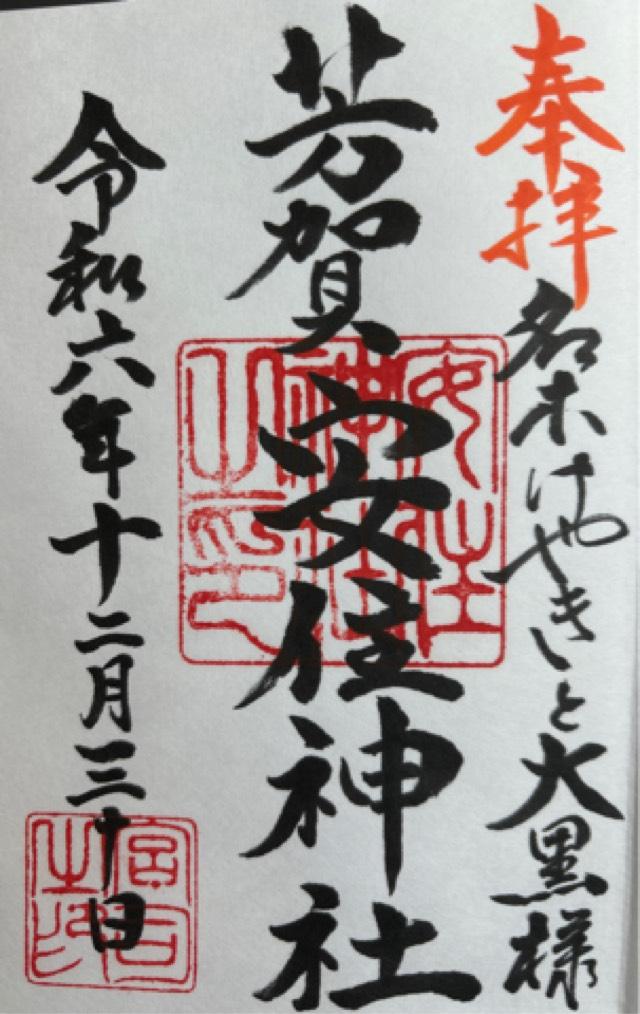 奉拝 名木けやきと大黒様
芳賀 安住神社
令和六年十二月三十日
安住神社之印
宮司之印